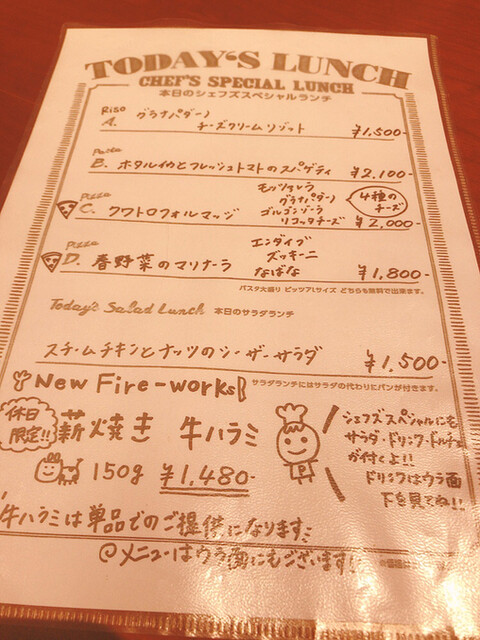 TODAY'S LUNCH
CHEF'S SPECIAL LUNCH
本日のシェフズスペシャルランチ
Riso
A. グラナパダーノ
チーズクリームリゾット ¥1,500-
Pasta
B. ホタルイカとフレッシュトマトのスパゲティ ¥2,100-
Pizza
C. クワトロフォルマッジ
モッツァレラ
グラナパダーノ
ゴルゴンゾーラ
リコッタチーズ
4種のチーズ
¥2,000-
Pizza
D. 春野菜のマリナーラ
エンダイブ
ズッキーニ
なばな
¥1,800-
パスタ大盛り ピッツァLサイズ どちらも無料で出来ます。
Today's Salad Lunch 本日のサラダランチ
スチームチキンとナッツのシーザーサラダ ¥1,500-
サラダランチにはサラダの代わりにパンが付きます。
New Fire-works
休日限定!!
薪焼き 牛ハラミ
150g ¥1,480-
シェフズスペシャルにも
サラダ・ドリンク・ドルチェ
が付くよ!!
ドリンクはウラ面
下を見てね!!
牛ハラミは単品でのご提供になります
@メニューはウラ面にもございます!